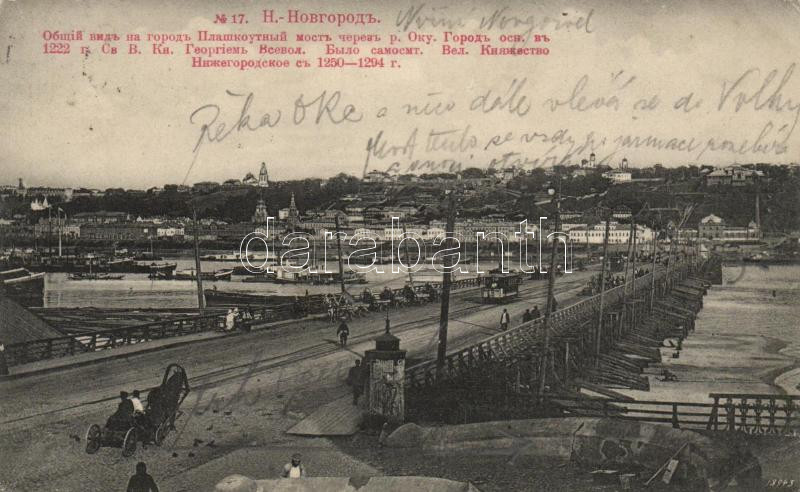 № 17. Н.-Новгородъ.
Общій видъ на городъ Плашкоутный мостъ черезъ р. Оку. Городъ осн. въ
1222 г. Св В. Кн. Георгіемъ Всевол. Было самосмт. Вел. Княжество
Нижегородское съ 1250—1294 г.
Nižní Novgorod
řeka Oke a níže dále vlévá se do Volhy
Most tento se vždy po jarmaci rozebírá
a znovu
darabanth
18943